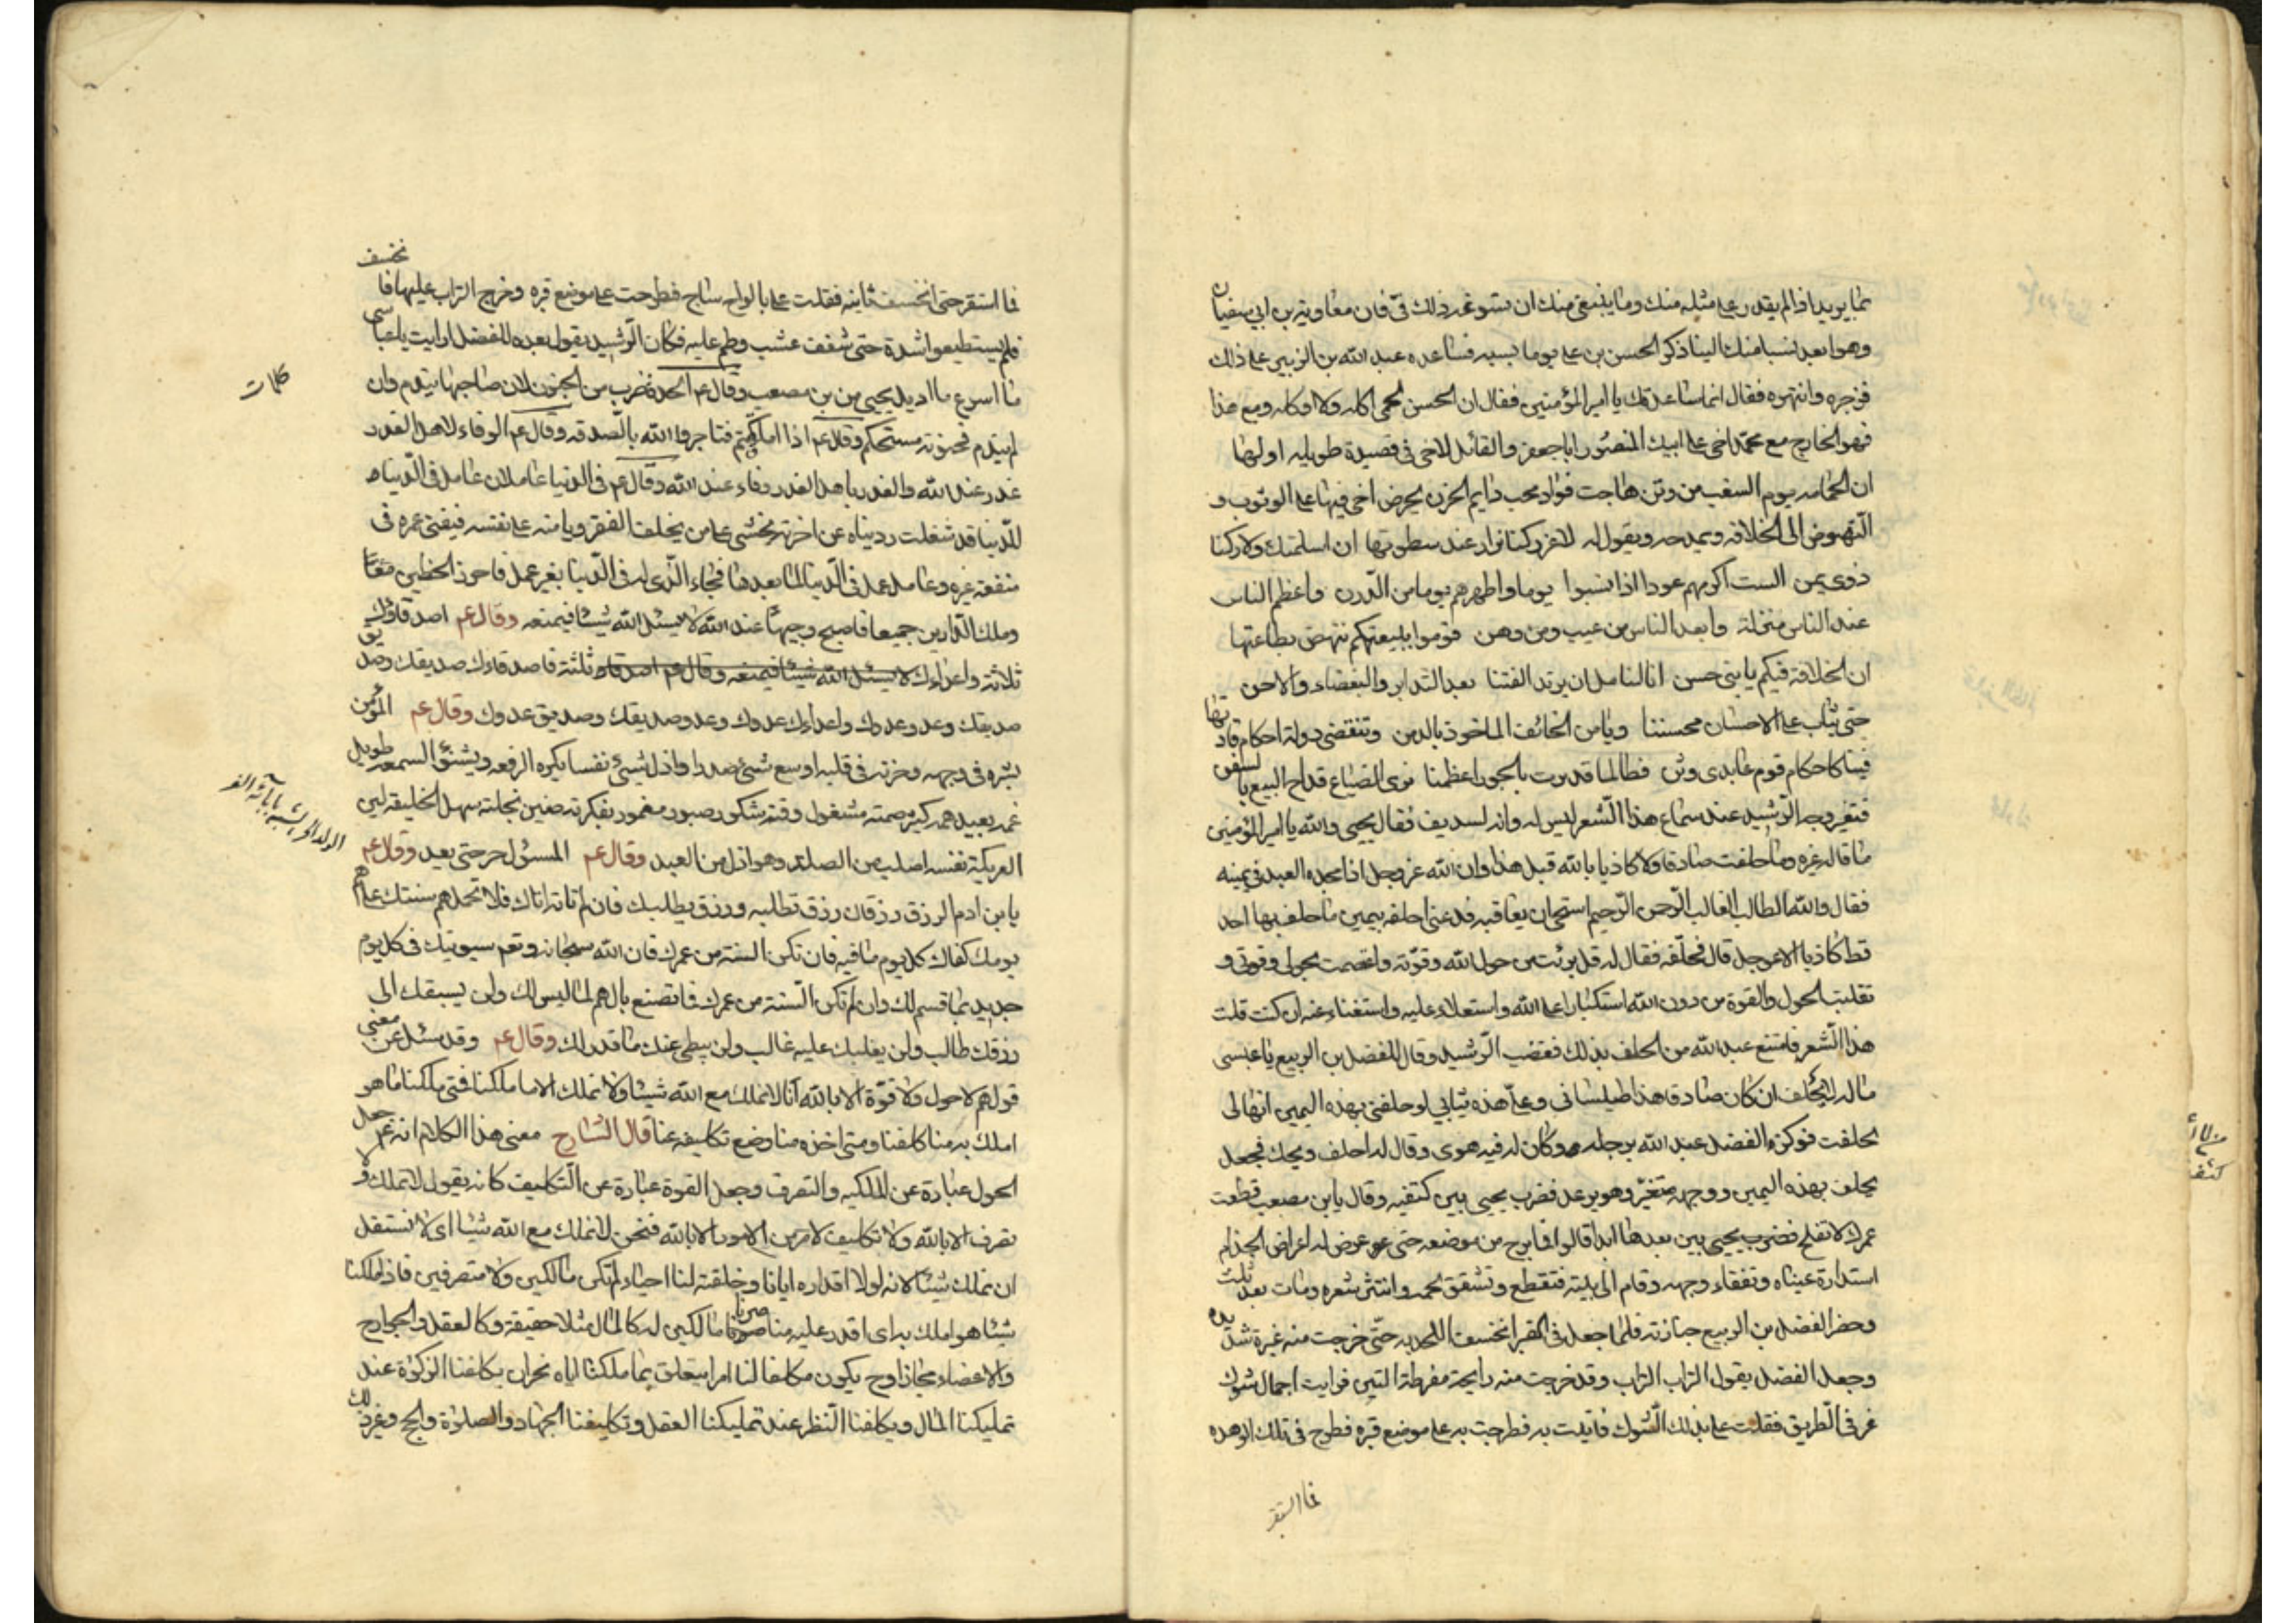 مما يريد اذا لم يقدر على مثله منك وما ينبغى منك ان تسوغه ذلك فىّ فان معاوية بن ابى سفيان
وهو ابعد نسبا منك الينا ذكر الحسن بن على يوما بسبه فساعده عبد الله بن الزبير على ذلك
فزجره وانتهره فقال انما ساعدتك يا امير المؤمنين فقال ان الحسن لحمى اكله ولا اوكله ومع هذا
فهو الخارج مع محمّد اخى على ابيك المنصور ابا جعفر والقائل لاخى فى قصيدة طويله اولها
ان الحمامه يوم الشعب من وثن هاجت فواد محب دايم الحزن يحرض اخى فيها على الوثوب و
النّهوض الى الخلافه ويمدحه ويقول له لا عز ركنا نزار عند سطوتها ان اسلمتك ولا ركنا
ذوى يمن الست اكرمهم عودا اذا نسبوا يوما واطهرهم يوما من الدّرن واعظم الناس
عند الناس منزلة وابعد الناس من عيب ومن وهن قوموا ببيعتكم ننهض بطاعتها
ان الخلافة فيكم يا بنى حسن انا لنامل ان يرتد الفتنا بعد التدابر والبغضاء والاحن
حتى يثاب على الاحسان محسننا ويامن الخائف الماخوذ بالدمن وتنقضى دولة احكام قادتها
فينا كاحكام قوم عابدى وثن فطالما قد بروت بالجور اعظمنا برى الصناع قداح النبع بالسفن
فتغير وجه الرّشيد عند سماع هذا الشّعر ليس له وانه لسديف فقال يحيى والله يا امير المؤمنين
ما قاله غيره وما حلفت صادقا ولا كاذبا بالله قبل هذا وان الله عز وجل اذا مجده العبد فى يمينه
فقال والله الطالب الغالب الرّحمن الرّحيم استحيان يعاقبه فدعنى احلفه بيمين ما حلف بها احد
قط كاذبا الا عوجل قال فحلّفه فقال له قل برئت من حول الله وقوّته واعتصمت بحولى وقوتى و
تقلدت الحول والقوة من دون الله استكبارا على الله واستعلاء عليه واستغناء عنه ان كنت قلت
هذا الشّعر فامتنع عبد الله من الحلف بذلك فغضب الرّشيد وقال للفضل بن الربيع يا عبسى
ماله لا يحلف ان كان صادقا هذا طيلسانى وعلىّ هذه ثيابى لو حلفنى بهذه اليمين انها لى
لحلفت فوكزه الفضل عبد الله برجله وكان له فيه هوى وقال له احلف ويحك فجعل
يحلف بهذه اليمين ووجهه متغيّر وهو يرعد فضرب يحيى بين كتفيه وقال يابن مصعب قطعت
عمرك لا تفلح فضرب يحيى بين بعدها ابدا قالوا فما برح من موضعه حتى عرض له اعراض الجذام
استدارة عيناه وتفقاء وجهه وقام الى بيته فتقطع وتشقق لحمه وانتثر شعره ومات بعد ثلث
وحضر الفضل بن الربيع جنازته فلما جعل فى القبر انخسف اللحد به حتّى خرجت منه غبرة شديده
وجعل الفضل يقول التراب التراب وقد خرجت منه رايحة مفرطة النتن فرايت اجمال شوك
غر فى الطّريق فقلت على بذلك الشّوك فاتيت به فطرحت به على موضع قبره فطرح فى تلك الوهده
فما استقر
فما استقر حتى انخسف ثانيه فقلت على بالواح ساج فطرحت على موضع قبره وخرج التراب عليها فا
نخسف
فلم يستطيعوا شدة حتى سقف عشب وطم عليه فكان الرّشيد يقول بعده للفضل ارايت يا عباسى
ما اسرع ما اديل يحيى من بن مصعب وقال عم الحدة ضرب من الجنون لان صاحبها يندم وان
كلمات
لم يندم فجنونه مستحكم وقال عم اذا املقتم فتاجروا الله بالصدقه وقال عم الوفاء لاهل الغدر
غدر عند الله والغدر باهل الغدر وفاء عند الله وقال عم فى الدنيا عاملان عامل فى الدّنيا
للدّنيا قد شغلت دنياه عن اخرته يخشى على من يخلف الفقر ويامنه على نفسه فيفنى عمره فى
منفعة غيره وعامل عمل فى الدّنيا لما بعدها فجاءه الذى له فى الدّنيا بغير عمل فاحرز الحظين معًا
وملك الدّارين جميعا فاصبح وجيها عند الله لا يسئل الله شيئا فيمنعه وقال عم اصدقاؤك
ثلاثة واعداوك لا يسئل الله شيئا فيمنعه وقال عم اصدقاوك ثلثة فاصدقاءك صديقك وصديق
صديقك وعدو عدوك واعداءك عدوك وعدو صديقك وصديق عدوك وقال عم المؤمن
بشره فى وجهه وحزنه فى قلبه اوسع شىء صدرا واذل شىء نفسا يكره الرفعه ويشنؤ السمعه طويل
غمه بعيد همه كثير صمته مشغول وقته شكور صبور مغمور بفكرته ضنين بخلته سهل الخليقه لين
العريكة نفسه اصلب من الصلد وهو اذل من العبد وقال عم المسؤل حر حتى يعد وقال عم
يا بن ادم الرزق رزقان رزق تطلبه ورزق يطلبك فان لم تاته اتاك فلا تحمل هم سنتك على هم
يومك كفاك كل يوم ما فيه فان تكن السنة من عمرك فان الله سبحانه وتعم سيوتيك فى كل يوم
جديد ما قسم لك وان لم تكن السّنة من عمرك فما تصنع بالهم لما ليس لك ولن يسبقك الى
رزقك طالب ولن يغلبك عليه غالب ولن يبطى عنك ما قدر لك وقال عم وقد سئل عن معنى
قولهم لا حول ولا قوّة الا بالله انا لا نملك مع الله شيئا ولا نملك الا ما ملكنا فمتى ملكنا ما هو
املك به منا كلفنا ومتى اخذه منا وضع تكليفه عنا قال الشارح معنى هذا الكلام انه عم جعل
الحول عبارة عن الملكيه والتصرف وجعل القوة عبارة عن التّكليف كانه يقول لا تملك ولا
تصرف الا بالله ولا تكليف لامر من الامور الا بالله فنحن لا نملك مع الله شيئا اى لا نستقل
ان نملك شيئا لانه لولا اقداره ايانا وخلقته لنا احياء لم تكن مالكين ولا متصرفين فاذا ملكنا
شيئا هو املك به اى اقدر عليه منا صرنا مالكين له كالمال مثلا حقيقة وكالعقل والجوارح
والاعضاء مجازا وح يكون مكلفا لنا امرا يتعلق بما ملكنا اياه نحو ان يكلفنا الزكوة عند
تمليكنا المال ويكلفنا النّظر عند تمليكنا العقل وتكليفنا الجهاد والصلوة والحج وغير ذلك